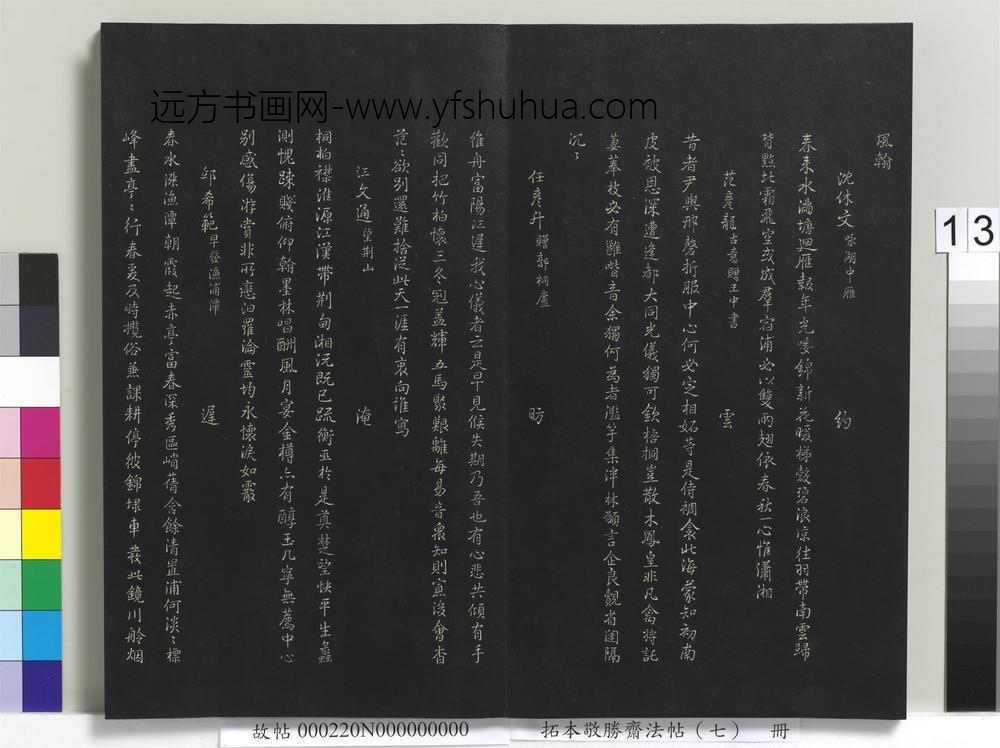 远方书画网-www.yfshuhua.com
風翰
沈休文 詠湖中雁 約
春来水滿塘迴雁報年光唼錦新花暖梯縠碧浪涼往羽帶南雲歸
背點北霜飛空或成羣宿浦必以雙兩翅依春秋一心惟瀟湘
范彦龍 古意贈王中書 雲
昔者尹與邢磬折服中心何必定相妬等是侍裯衾此海蒙知初南
皮被恩深遭逢都大同光儀獨可欽梧桐豈散木鳳皇非凡禽將託
萋菶枝必有雝喈音余獨何為者濫竽集泮林願言企良覿省闥隔
沉〻
任彦升 贈郭桐廬 昉
維舟富陽江遲我心儀者云是早見候失期乃吾也有心悲共傾有手
歡同把竹柏懷三冬冠葢輝五馬聚艱離每易音衆知則寡後會杳
茫〻欲别還難捨從此天一涯有衷向誰寫
江文通 望荆山 淹
桐柏襟淮源江漢帶荆甸湘沅既已疏衡巫於是奠楚望快平生蠡
測愧踈賤俯仰翰墨林唱酬風月宴金樽亦有醇玉几寧無薦中心
别感傷游賞非所戀汨羅淪靈均永懷淚如霰
邱希範 早發漁浦潭 遲
春水漲漁潭朝霞起赤亭富春深秀區峭蒨含餘清置浦何淡〻標
峰盡亭〻行春爰及時攬俗兼課耕停彼錦埭車發此鏡川舲烟
13
故帖 000220N000000000
拓本敬勝齋法帖（七） 冊